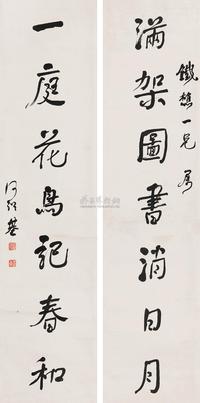 滿架圖書消日月
鐵樵一兄屬
一庭花鳥記春和
何紹基